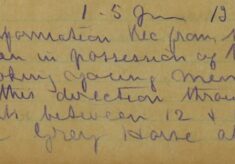 1-5 Jun 19
formation Rec from
in possession of
young men
this direction throu
between 12 &
Grey Horse a